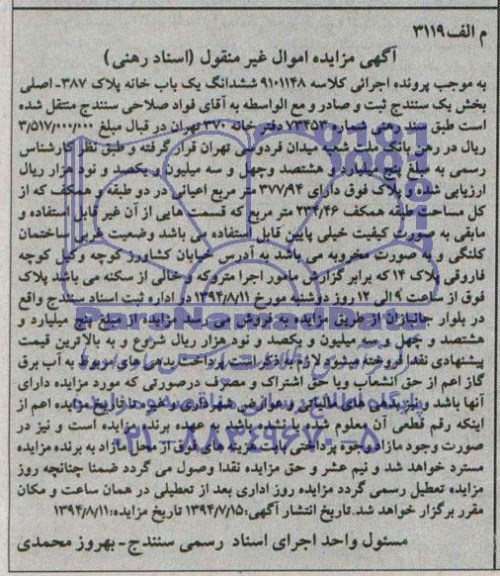 م الف ۳۱۱۹
آگهی مزایده اموال غیر منقول (اسناد رهنی)
به موجب پرونده اجرائی کلاسه ۹۱۰۱۱۴۸ ششدانگ یک باب خانه پلاک ۳۸۷- اصلی
بخش یک سنندج ثبت و صادر و مع الواسطه به آقای فواد صلاحی سنندج منتقل شده
است طبق سند رهنی شماره ۷۳۴۵۳ دفتر خانه ۳۷۰ تهران در قبال مبلغ ۳/۵۱۷/۰۰۰/۰۰۰
ریال در رهن بانک ملت شعبه میدان فردوسی تهران قرار گرفته و طبق نظر کارشناس
رسمی به مبلغ پنج میلیارد و هشتصد وچهل و سه میلیون و یکصد و نود هزار ریال
ارزیابی شده و پلاک فوق دارای ۳۷۷/۹۴ متر مربع اعیانی در دو طبقه و همکف که از
کل مساحت طبقه همکف ۲۳۴/۴۶ متر مربع که قسمت هایی از آن غیر قابل استفاده و
مابقی به صورت کیفیت خیلی پایین قابل استفاده می باشد وضعیت غربی ساختمان
کلنگی و به صورت مخروبه می باشد به آدرس خیابان کشاورز کوچه وکیل کوچه
فاروقی پلاک ۱۴ که برابر گزارش مامور اجرا متروکه و خالی از سکنه می باشد پلاک
فوق از ساعت ۹ الی ۱۲ روز دوشنبه مورخ ۱۳۹۴/۸/۱۱ در اداره ثبت اسناد سنندج واقع
در بلوار جانبازان از طریق مزایده به فروش می رسد مزایده از مبلغ پنج میلیارد و
هشتصد و چهل و سه میلیون و یکصد و نود هزار ریال شروع و به بالاترین قیمت
پیشنهادی نقدا فروخته میشود لازم به ذکر است پرداخت بدهی های مربوط به آب برق
گاز اعم از حق انشعاب ویا حق اشتراک و مصرف درصورتی که مورد مزایده دارای
آنها باشد و نیز بدهی های مالیاتی و عوارض شهرداری و غیره تا تاریخ مزایده اعم از
اینکه رقم قطعی آن معلوم شده یا نشده باشد به عهده برنده مزایده است و نیز در
صورت وجود مازاد وجوه پرداختی بابت هزینه های فوق از محل مازاد به برنده مزایده
مسترد خواهد شد و نیم عشر و حق مزایده نقدا وصول می گردد ضمنا چنانچه روز
مزایده تعطیل رسمی گردد مزایده روز اداری بعد از تعطیلی در همان ساعت و مکان
مقرر برگزار خواهد شد.تاریخ انتشار آگهی:۱۳۹۴/۷/۱۵ تاریخ مزایده:۱۳۹۴/۸/۱۱
مسئول واحد اجرای اسناد رسمی سنندج - بهروز محمدی
ParsNamadData
پایگاه اطلاع رسانی مناقصه و مزایده
۰۲۱-۸۸۳۴۹۶۷۰-۵